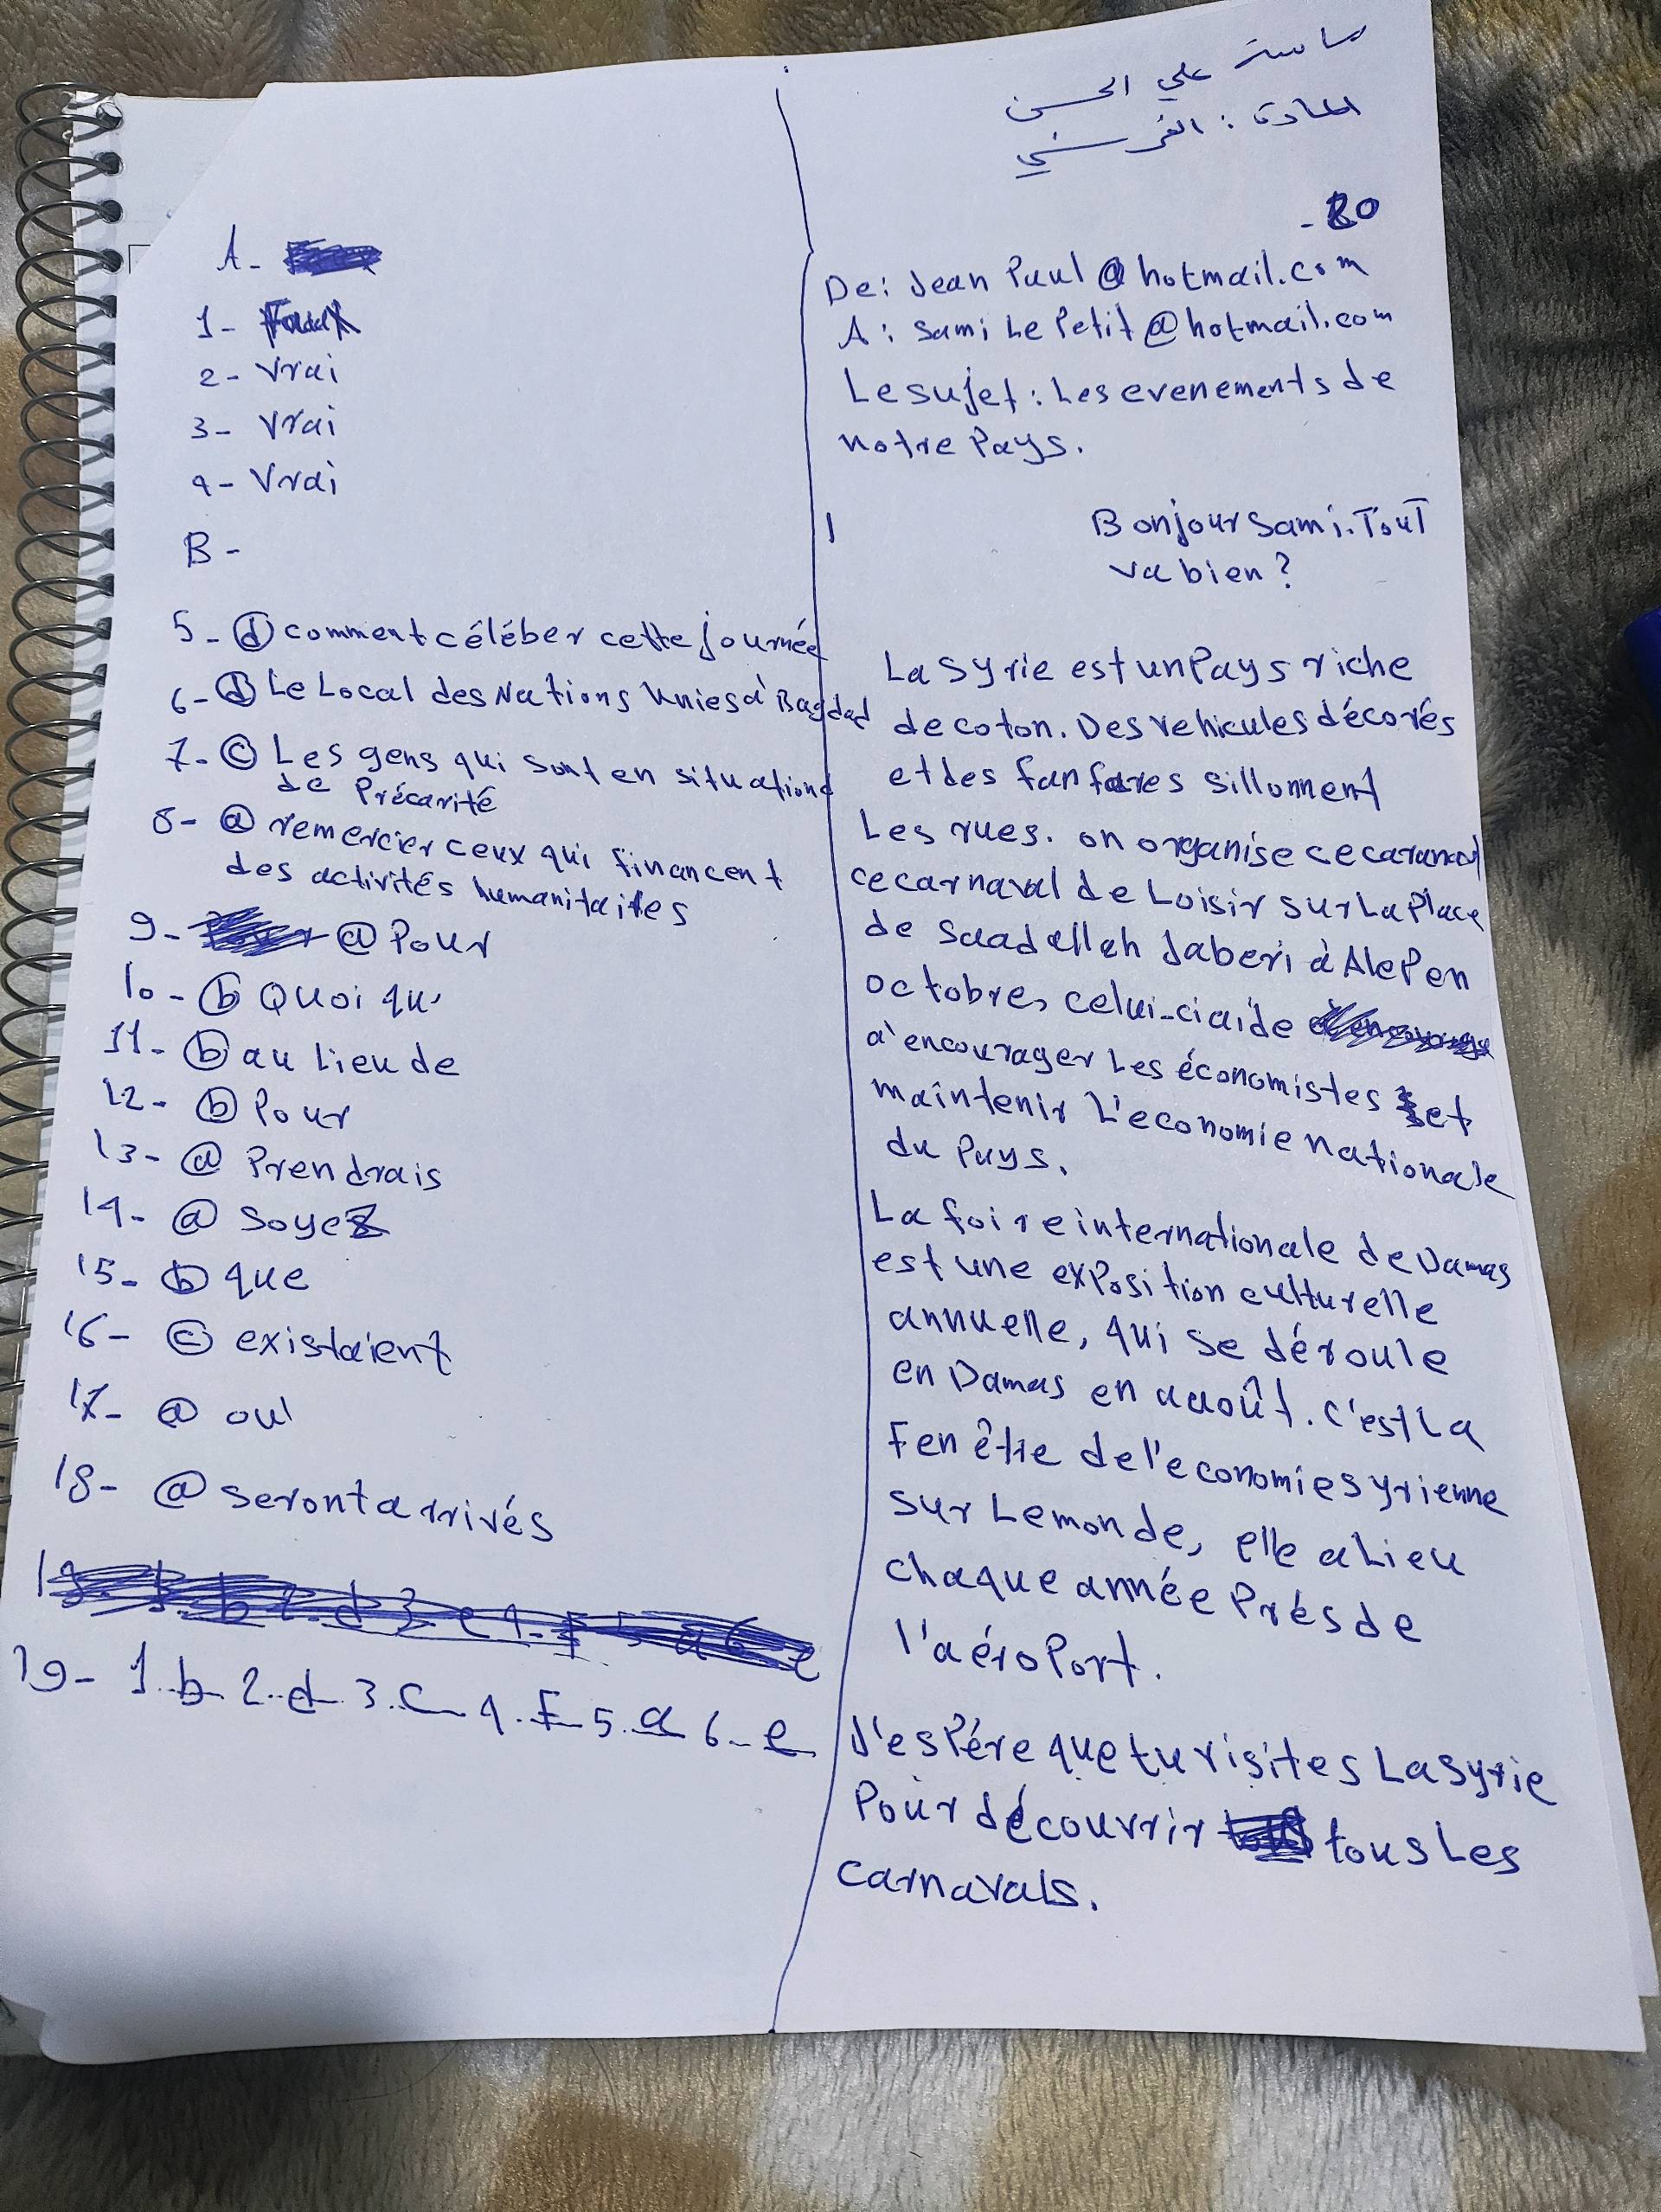 علي الحسن
المادة : الفرنسي
A-
1- Faux
2- Vrai
3- Vrai
4- Vrai
B-
5- ⓓ comment céléber cette journée
6- ⓓ Le Local des Nations Unies à Bagdad
7- ⓒ Les gens qui sont en situations
de Précarité
8- ⓐ remercier ceux qui financent
des activités humanitaites
9- ⓐ Pour
10- ⓑ Quoi qu'
11- ⓑ au Lieu de
12- ⓑ Pour
13- ⓐ Prendrais
14- ⓐ Soyez
15- ⓑ que
16- ⓒ existaient
17- ⓐ où
18- ⓐ seront arrivés
19- 1.b 2.d 3.c 4.F 5.a 6-e
-20
De: Jean Paul@hotmail.com
A: Sami Le Petit@hotmail.com
Le sujet: Les evenements de
notre Pays.
Bonjour Sami. Tout
va bien?
La Syrie est un Pays riche
de coton. Des vehicules décorés
et des fanfares sillonnent
Les rues. on organise ce
ce carnaval de Loisir sur La Place
de Saadallah Jaberi à Alep en
octobre, celui-ci aide
à encourager Les économistes et
maintenir L'economie nationale
du Pays.
La foire internationale de Damas
est une exposition culturelle
annuelle, qui se déroule
en Damas en août. C'est La
Fenêtre de l'economie syrienne
sur Le monde, elle a Lieu
chaque année Prés de
l'aéroport.
J'espére que tu visites La Syrie
Pour découvrir tous Les
carnavals.